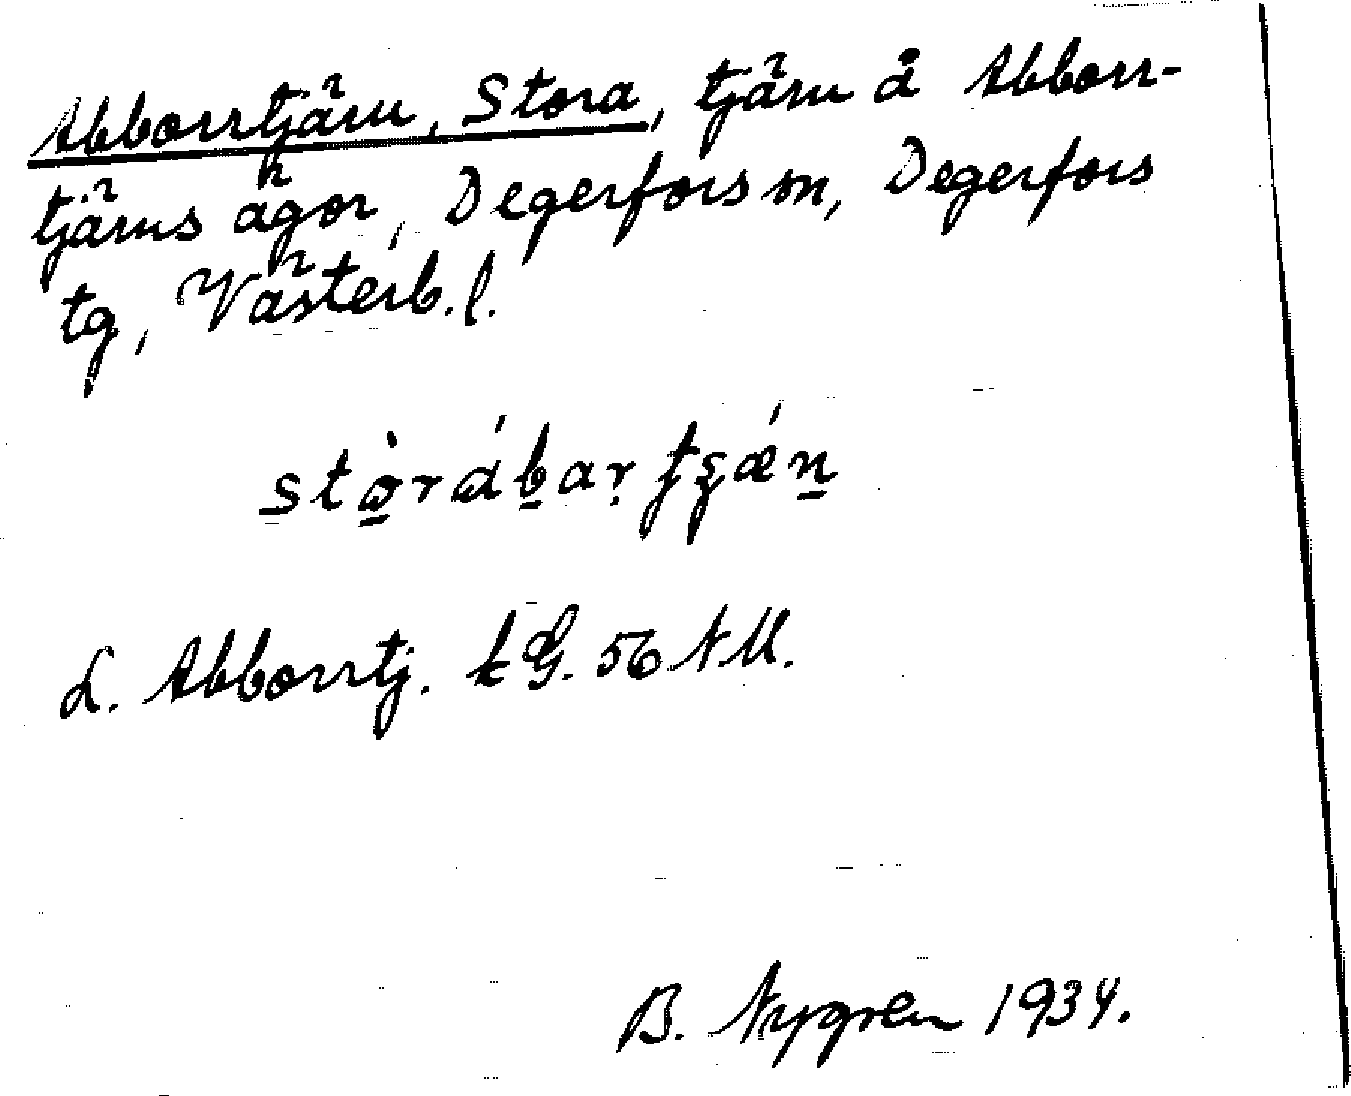 Abborrtjärn, Stora, tjärn å Abborr-
tjärns ägor, Degerfors sn, Degerfors
tg, Västerb. l.
L. Abborrtj. kG. 56 NV.
B. Nygren 1934.